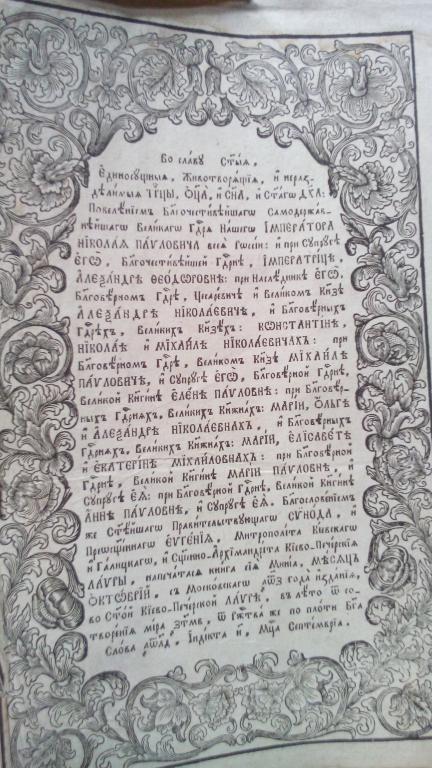 Во славу Ст҃ыѧ,
Єдиносꙋщныѧ, Животворѧщїѧ, и҆ нераз̾-
дѣлимыѧ Трⷪ҇цы, Ѻ҆ц҃а̀, и҆ Сн҃а, и҆ Ст҃а́гѡ Дх҃а:
Повелѣнїемъ Блгⷭ҇очестивѣйшагѡ Самодержав-
нѣйшагѡ Великагѡ Гдⷭ҇рѧ Нашегѡ ІМПЕРАТОРА
НІКОЛАѦ ПАѴЛОВИЧА всеѧ̀ Рѡссїи: и҆ при Сꙋпрꙋгѣ
Є҆ГѠ̀, Блгⷭ҇очестивѣйшей Гдⷭ҇рнѣ, ІМПЕРАТРІЦѢ,
АЛЕѮАНДРѢ ѲЕѠДѠРОВНѢ: при Наслѣдникѣ Є҆ГѠ̀,
Блгⷭ҇овѣрномъ Гдⷭ҇рѣ, Цесаревичѣ и҆ Великомъ Кн҃зѣ
АЛЕѮАНДРѢ НІКОЛАЕВИЧѢ, и҆ Блгⷭ҇овѣрныхъ
Гдⷭ҇рѣхъ, Великихъ Кн҃зѣхъ: КѠНСТАНТІНѢ,
НІКОЛАѢ и҆ МІХАИЛѢ НІКОЛАЕВИЧАХЪ: при
Блгⷭ҇овѣрномъ Гдⷭ҇рѣ, Великомъ Кн҃зѣ МІХАИЛѢ
ПАѴЛОВИЧѢ, и҆ Сꙋпрꙋгѣ Є҆ГѠ̀, Блгⷭ҇овѣрной Гдⷭ҇рнѣ,
Великой Кн҃гинѣ ЕЛЕНѢ ПАѴЛОВНѢ: при Блгⷭ҇овѣр-
ныхъ Гдⷭ҇рнѧхъ, Великихъ Кн҃жнахъ: МАРІИ, ѺЛЬГѢ
и҆ АЛЕѮАНДРѢ НІКОЛАЕВНАХЪ, и҆ Блгⷭ҇овѣрныхъ
Гдⷭ҇рнѧхъ, Великихъ Кн҃жнахъ: МАРІИ, ЕЛІСАВЕТѢ
и҆ ЕКАТЕРІНѢ МІХАИЛОВНАХЪ: при Блгⷭ҇овѣрной
Гдⷭ҇рнѣ, Великой Кн҃гинѣ МАРІИ ПАѴЛОВНѢ, и҆
Сꙋпрꙋгѣ Є҆Ѧ̀: при Блгⷭ҇овѣрной Гдⷭ҇рнѣ, Великой Кн҃гинѣ
АННѢ ПАѴЛОВНѢ, и҆ Сꙋпрꙋгѣ Є҆Ѧ̀. Благословенїемъ
же Ст҃ѣйшагѡ Правительствꙋющагѡ СѴНОДА, и҆
Преѡсщ҃еннагѡ ЕѴГЕНІА, Митрополїта Кїевскагѡ
и҆ Галицкагѡ, и҆ Сщ҃енно-Архїмандрїта Кїево-Печерскїѧ
ЛАѴРЫ, напечатасѧ книга сїѧ̀ Минїа, МѢСѦЦЪ
ѺКТѠВРІЙ, съ Московскагѡ года и҆зданїѧ,
во Ст҃ой Кїево-Печерской Лаѵрѣ, въ лѣто ѿ со-
творенїѧ мїра ѿ Ржⷭ҇тва же по плоти Бг҃а
Слова Їндїкта и҃, Мцⷭ҇а Септемврїа.